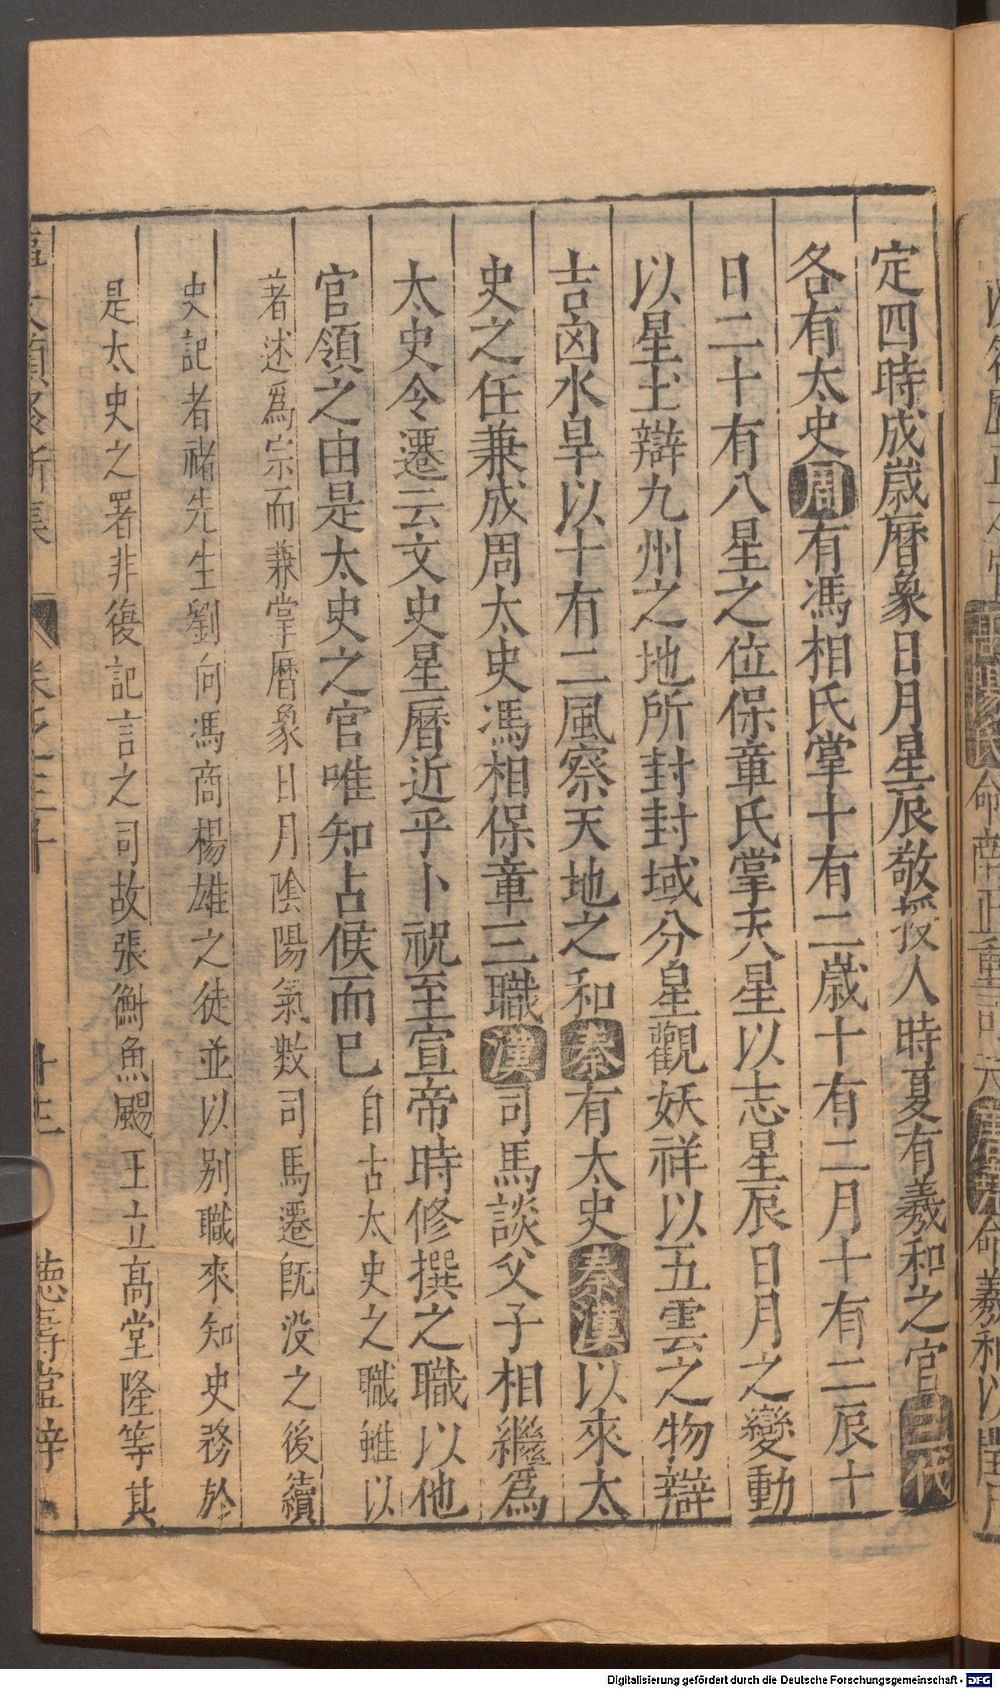 定四時成歲曆象日月星辰敬授人時夏有羲和之官三代
各有太史周有馮相氏掌十有二歲十有二月十有二辰十
日二十有八星之位保章氏掌天星以志星辰日月之變動
以星土辯九州之地所封封域分星觀妖祥以五雲之物辯
吉凶水旱以十有二風察天地之和秦有太史秦漢以來太
史之任兼成周太史馮相保章三職漢司馬談父子相繼爲
太史令遷云文史星曆近乎卜祝至宣帝時修撰之職以他
官領之由是太史之官唯知占候而已自古太史之職雖以
著述爲宗而兼掌曆象日月陰陽氣數司馬遷旣没之後續
史記者禇先生劉向馮商楊雄之徒並以別職來知史務於
是太史之署非復記言之司故張衡魚飏王立高堂隆等其
卷之三十 十三 德壽堂梓
命南正重司天
命羲和以閏月
Digitalisierung gefördert durch die Deutsche Forschungsgemeinschaft - DFG